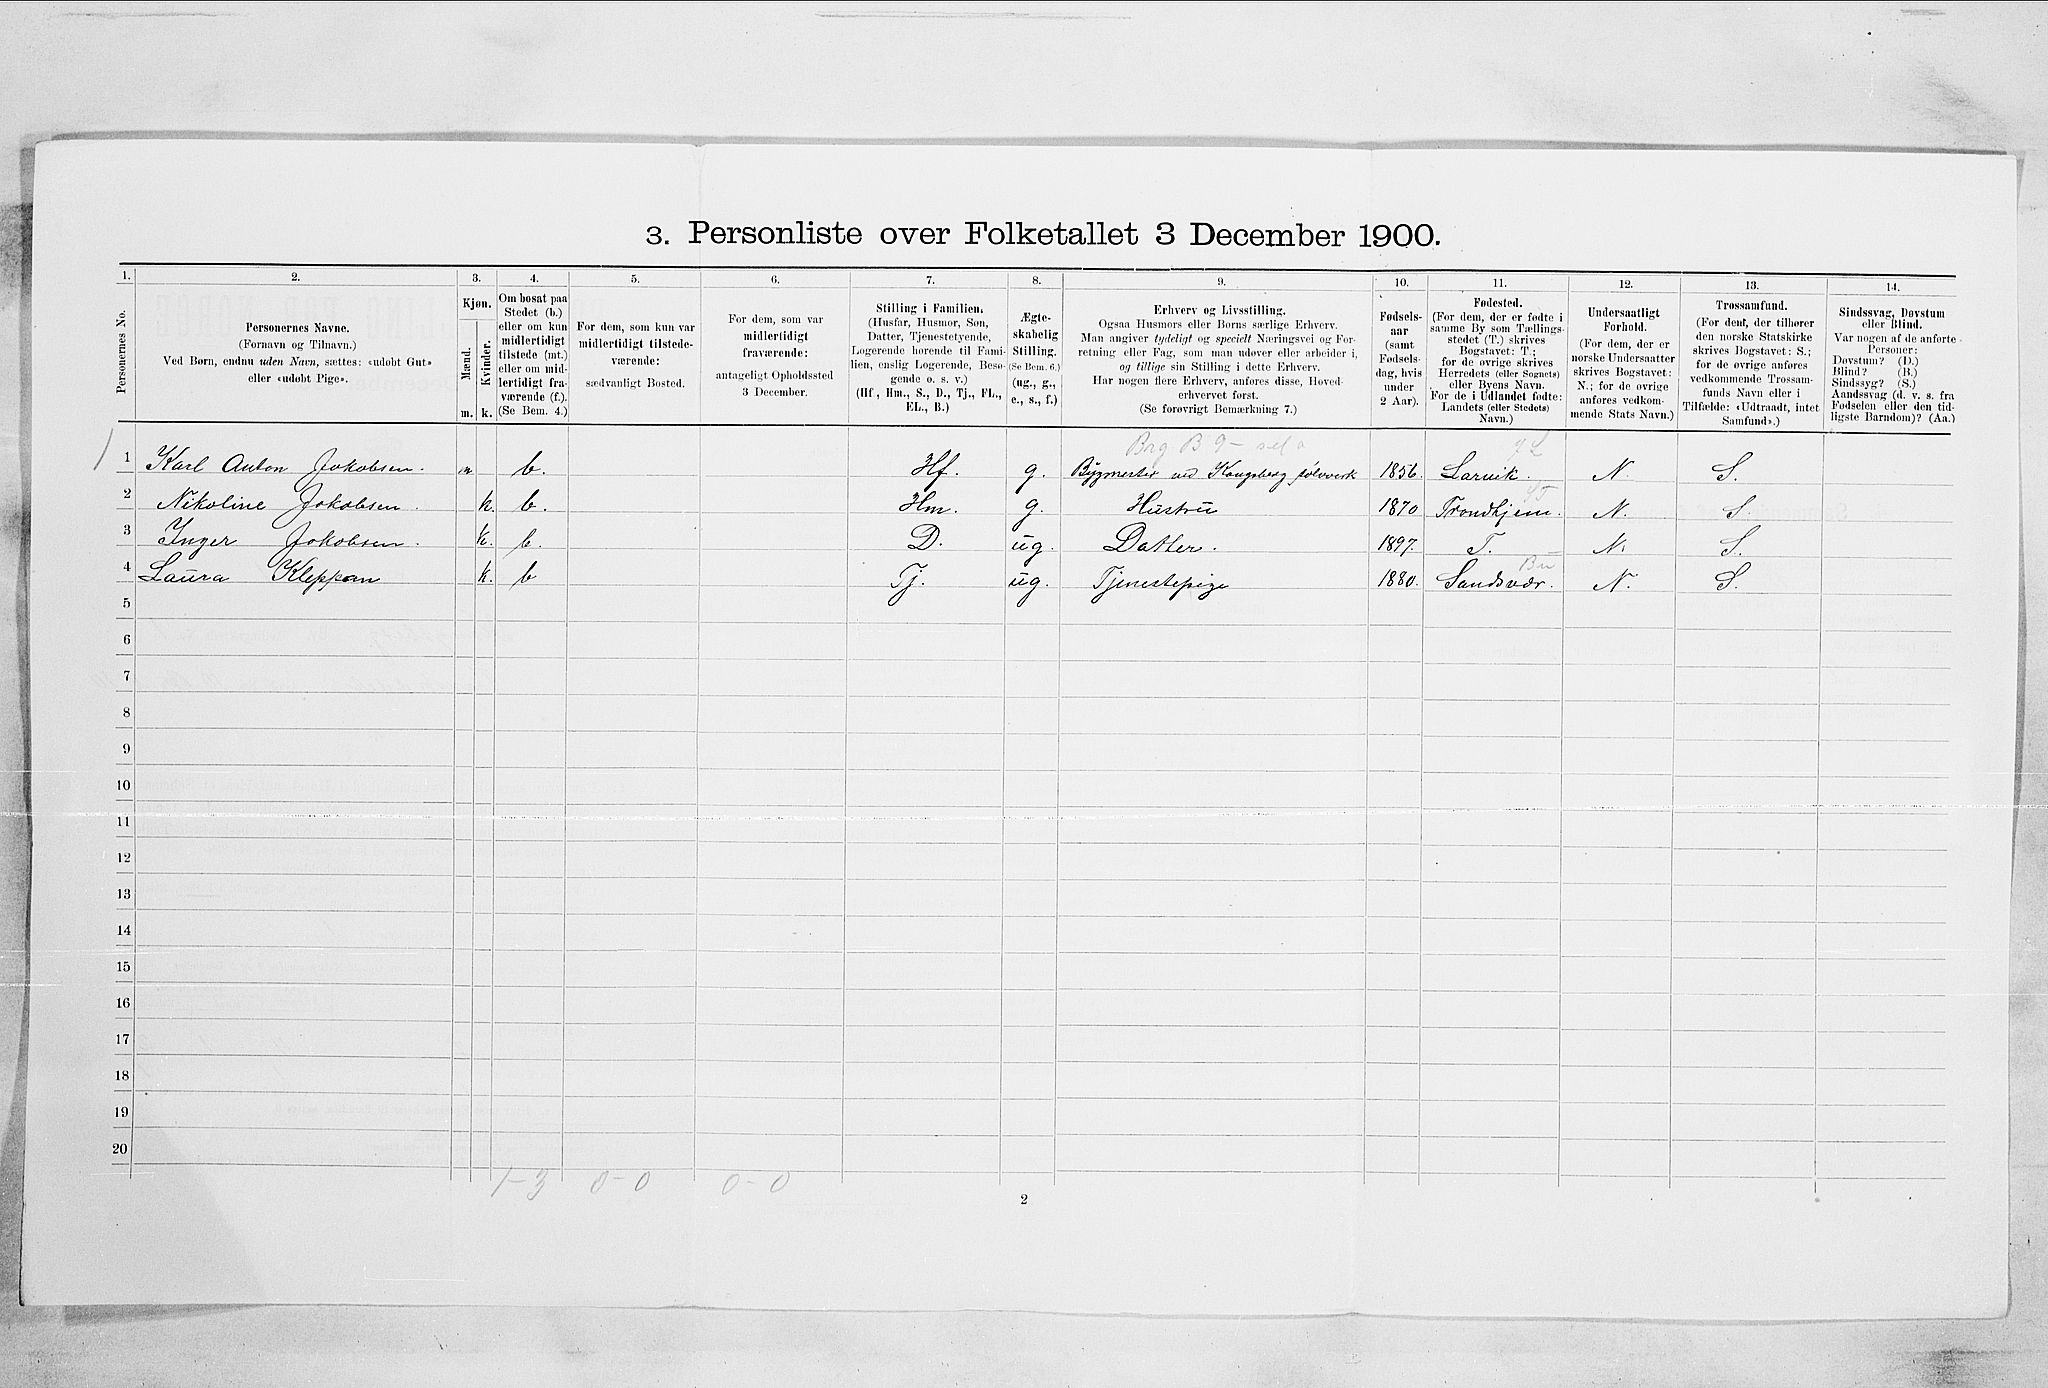 3. Personliste over Folketallet 3 December 1900.
1. 2. 3. 4. 5. 6. 7. 8. 9. 10. 11. 12. 13. 14.
Personernes No.
Personernes Navne.
(Fornavn og Tilnavn.)
Ved Børn, endnu uden Navn, sættes: «udøbt Gut»
eller «udøbt Pige».
Kjøn.
Mænd.
Kvinder.
m. k.
Om bosat paa
Stedet (b.)
eller om kun
midlertidigt
tilstede (mt.)
eller om mid-
lertidigt fra-
værende (f.).
(Se Bem. 4.)
For dem, som kun var
midlertidigt tilstede-
værende:
sædvanligt Bosted.
For dem, som var
midlertidigt
fraværende:
antageligt Opholdssted
3 December.
Stilling i Familien.
(Husfar, Husmor, Søn,
Datter, Tjenestetyende,
Logerende hørende til Fami-
lien, enslig Logerende, Besø-
gende o. s. v.)
(Hf, Hm., S., D., Tj., FL.,
EL., B.)
Ægte-
skabelig
Stilling.
(Se Bem. 6.)
(ug., g.,
e., s., f.)
Erhverv og Livsstilling.
Ogsaa Husmors eller Børns særlige Erhverv.
Man angiver tydeligt og specielt Næringsvei og For-
retning eller Fag, som man udøver eller arbeider i,
og tillige sin Stilling i dette Erhverv.
Har nogen flere Erhverv, anføres disse, Hoved-
erhvervet først.
(Se forøvrigt Bemærkning 7.)
Fødsels-
aar
(samt
Fødsels-
dag, hvis
under
2 Aar).
Fødested.
(For dem, der er fødte i
samme By som Tællings-
stedet (T.) skrives
Bogstavet: T.;
for de øvrige skrives
Herredets (eller Sognets)
eller Byens Navn.
For de i Udlandet fødte:
Landets (eller Stedets)
Navn.)
Undersaatligt
Forhold.
(For dem, der er
norske Undersaatter
skrives Bogstavet:
N.; for de øvrige
anføres vedkom-
mende Stats Navn.)
Trossamfund.
(For dem, der tilhører
den norske Statskirke
skrives Bogstavet: S.;
for de øvrige anføres
vedkommende Trossam-
funds Navn eller i
Tilfælde: «Udtraadt, intet
Samfund».)
Sindssvag, Døvstum
eller Blind.
Var nogen af de anførte
Personer:
Døvstum? (D.)
Blind? (B.)
Sindssyg? (S.)
Aandssvag (d. v. s. fra
Fødselen eller den tid-
ligste Barndom)? (Aa.)
1 Karl Anton Jokobsen. m b. Hf. g. Bygmester ved Kongsberg sølvverk 1856. Larvik. N. S.
2 Nikoline Jokobsen. k. b. Hm. g. Hustru 1870 Trondhjem. N. S.
3 Inger Jokobsen. k. b. D. ug. Datter. 1897. T. N. S.
4 Laura Kleppan k. b Tj. ug. Tjenestepige 1880. Sandsvær. N. S.
5
6
7
8
9
10
11
12
13
14
15
16
17
18
19
20
1-3 0-0 0-0
2